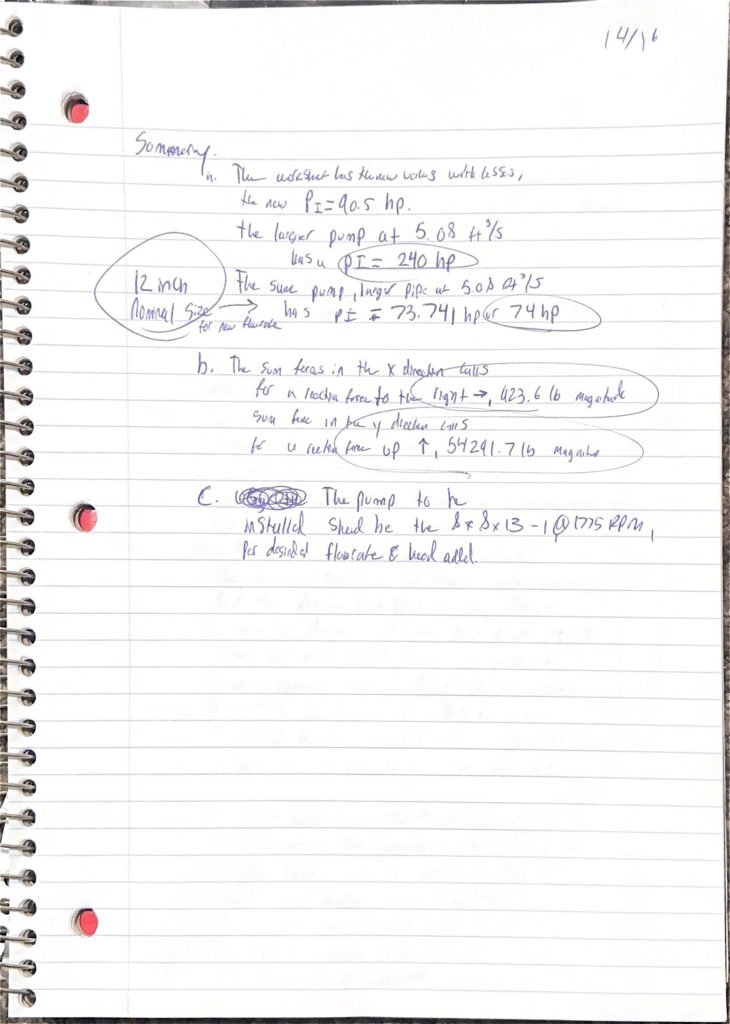 14/16
Sommery.
a. The worksheet has the new values with losses,
the new PI = 90.5 hp.
the larger pump at 5.08 ft³/s
has a PI = 240 hp
12 inch
Nominal Size →
for new flowrate
The same pump, larger pipe at 5.08 ft³/s
has PI = 73.741 hp or 74 hp
b. The sum forces in the x direction calls
for a reaction force to the right →, 423.6 lb magnitude
sum force in the y direction calls
for a reaction force up ↑, 54291.7 lb magnitude
C. The pump to be
installed should be the 8x8x13-1 @ 1775 RPM,
for desired flowrate & head added.